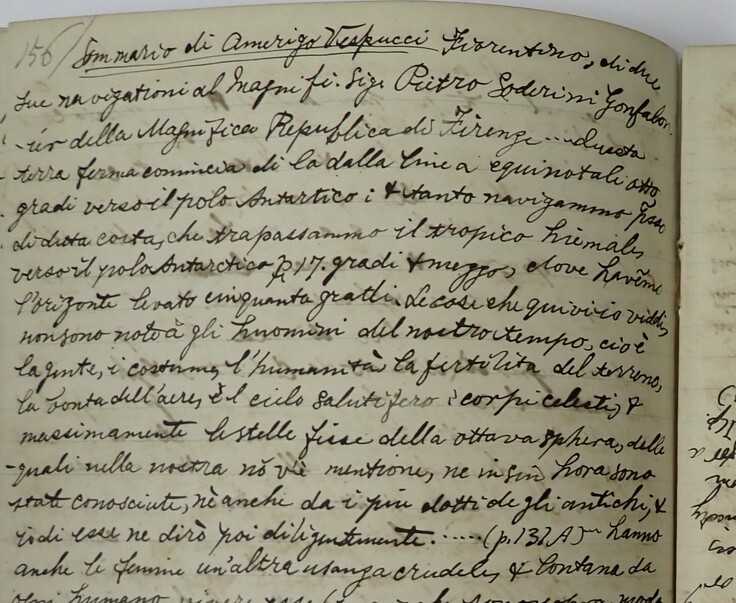 156/ Sommario di Amerigo Vespucci Fiorentino, di due
sue navigationi al Magnifi. Sigr Pietro Soderini Gonfalon-
-ier della Magnifica Republica di Firenze ... Questa
terra ferma comincia di la dalla linea equinotiali otto
gradi verso il polo Antartico i & tanto navigammo
di detta costa, che trapassammo il tropico hiemale,
verso il polo Antarctico p 17. gradi & mezzo, dove havemo
l'orizonte levato cinquanta gradi. Le cose che quivi io viddi,
non sono note à gli huomini del nostro tempo, cio è
la gente, i costumi, l'humanità la fertilita del terreno,
la bonta dell'aere, è l cielo salutifero i corpi celesti, &
massimamente le stelle fisse della ottava sphera, delle
-quali nella nostra nō v'è mentione, ne in sin hora sono
state conosciute, nè anche da i piu dotti de gli antichi, &
io di esse ne dirò poi diligentemente. ..... (p. 131 A) hanno
anche le femine un'altra usanza crudele, & lontana da
ogni humano vivere